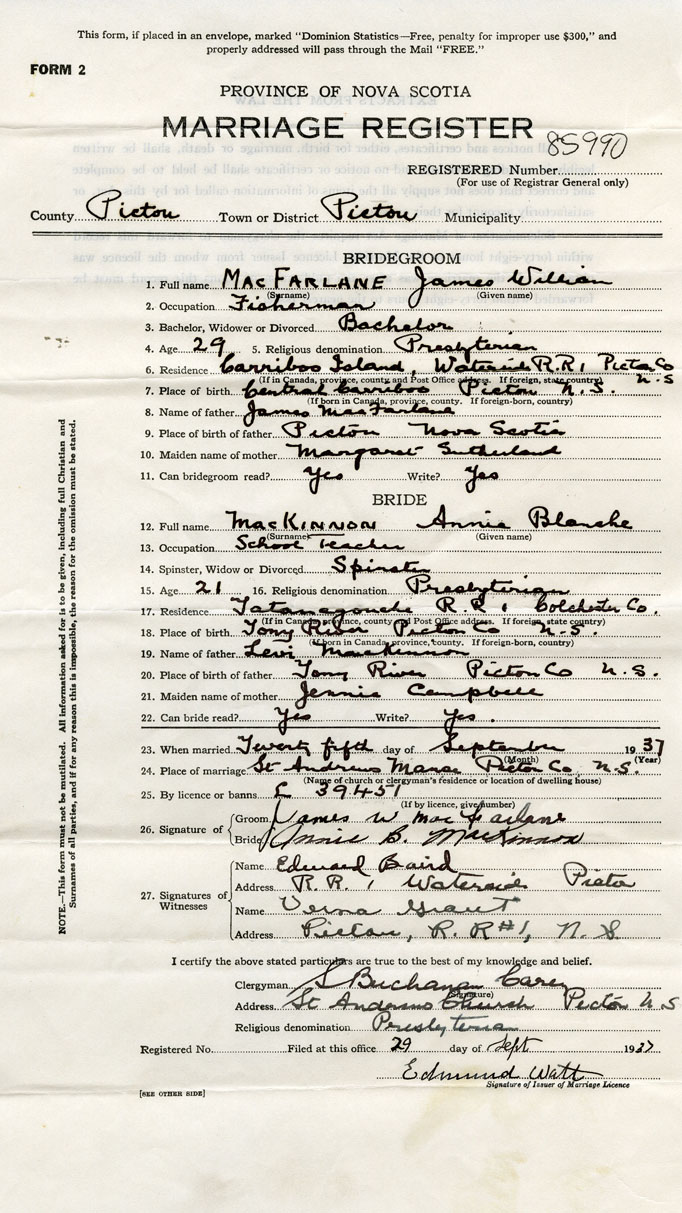 This form, if placed in an envelope, marked "Dominion Statistics—Free, penalty for improper use $300," and
properly addressed will pass through the Mail "FREE."
FORM 2
PROVINCE OF NOVA SCOTIA
MARRIAGE REGISTER
85990
REGISTERED Number
(For use of Registrar General only)
County Pictou Town or District Pictou Municipality
BRIDEGROOM
1. Full name MacFarlane James William
(Surname) (Given name)
2. Occupation Fisherman
3. Bachelor, Widower or Divorced Bachelor
4. Age 29 5. Religious denomination Presbyterian
6. Residence Carriboo Island, Waterside R.R. 1 Pictou Co N.S
(If in Canada, province, county and Post Office address. If foreign, state country)
7. Place of birth Central Carriboo Pictou N.S.
(If born in Canada, province, county. If foreign-born, country)
8. Name of father James MacFarlane
9. Place of birth of father Pictou Nova Scotia
10. Maiden name of mother Margaret Sutherland
11. Can bridegroom read? Yes Write? Yes
BRIDE
12. Full name MacKinnon Annie Blanche
(Surname) (Given name)
13. Occupation School Teacher
14. Spinster, Widow or Divorced Spinster
15. Age 21 16. Religious denomination Presbyterian
17. Residence Tatamagouche R.R 1 Colchester Co.
(If in Canada, province, county and Post Office address. If foreign, state country)
18. Place of birth Tony River Pictou Co N.S.
(If born in Canada, province, county. If foreign-born, country)
19. Name of father Levi MacKinnon
20. Place of birth of father Tony River Pictou Co N.S.
21. Maiden name of mother Jennie Campbell
22. Can bride read? Yes Write? Yes.
23. When married Twenty fifth day of September 1937
(Month) (Year)
24. Place of marriage St Andrews Manse Pictou Co N.S.
(Name of church or clergyman's residence or location of dwelling house)
25. By licence or banns L 39451
(If by licence, give number)
26. Signature of
Groom James W MacFarlane
Bride Annie B. MacKinnon
27. Signatures of Witnesses
Name Edward Baird
Address R.R. 1 Waterside Pictou
Name Verna Grant
Address Pictou, R.R #1, N.S.
I certify the above stated particulars are true to the best of my knowledge and belief.
Clergyman S Buchanan Carey
(Signature)
Address St Andrews Church Pictou N S
Religious denomination Presbyterian
Registered No. Filed at this office 29 day of Sept 1937
Edmund Watt
Signature of Issuer of Marriage Licence
[SEE OTHER SIDE]
NOTE.—This form must not be mutilated. All information asked for is to be given, including full Christian and
Surnames of all parties, and if for any reason this is impossible, the reason for the omission must be stated.